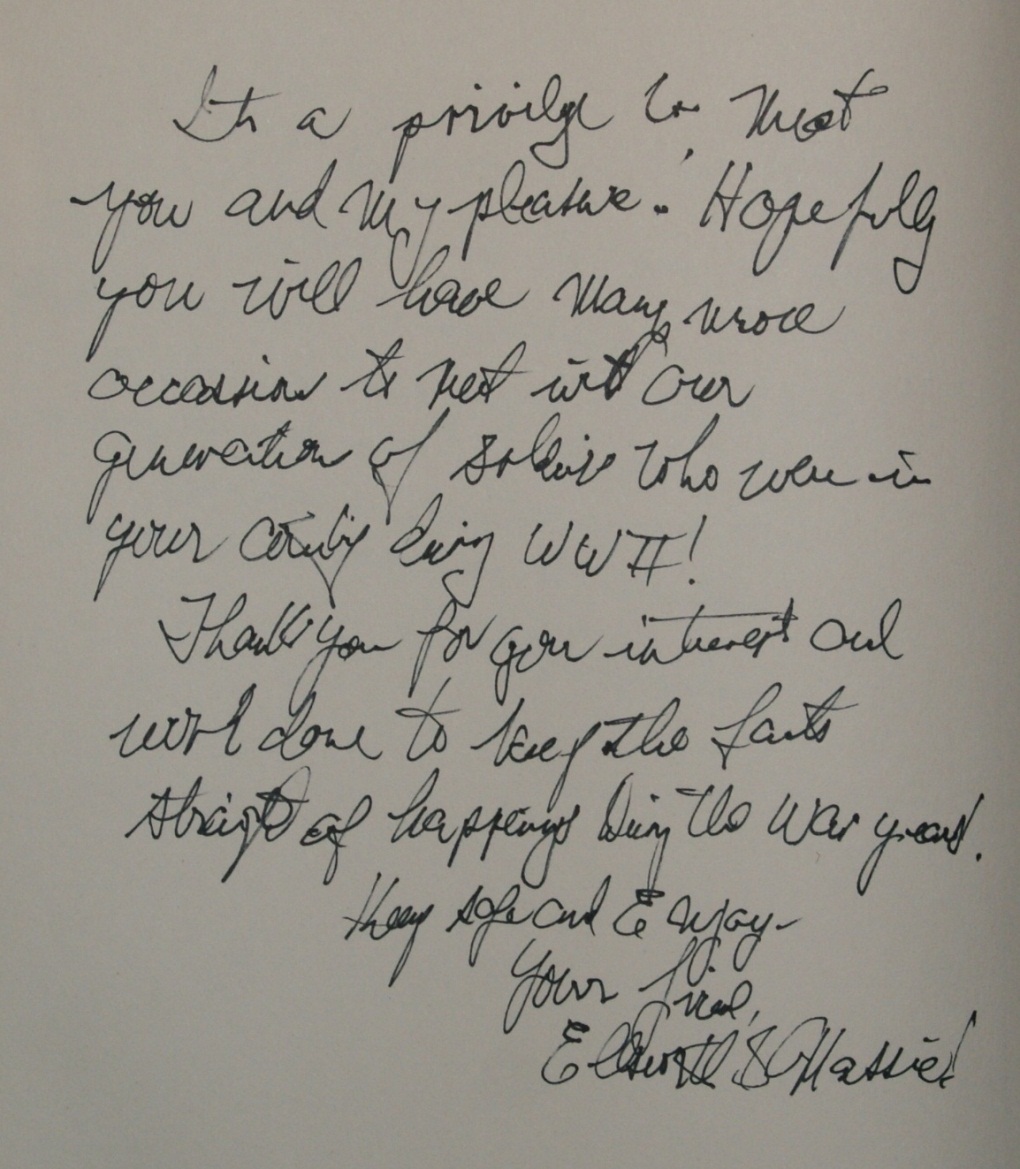 It's a privilge to meet
you and my pleasure! Hopefuly
you will have many more
occassions to meet with our
generation of soldiers who were in
your county during WW II!
Thank you for your interest and
work done to keep the facts
straight of happenings during the War years!
Keep safe and Enjoy-
Your friend,
Ellsworth